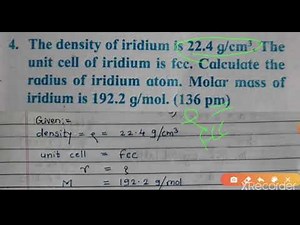 4. The density of iridium is 22.4 g/cm³. The
unit cell of iridium is fcc. Calculate the
radius of iridium atom. Molar mass of
iridium is 192.2 g/mol. (136 pm)
Given:-
density = ρ = 22.4 g/cm³
unit cell = Fcc
r = ?
M = 192.2 g/mol
XRecorder